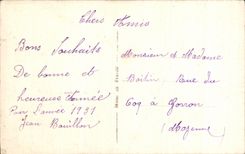 Chers Amis
Bons Souhaits
De bonne et
heureuse Année
Pour l'année 1931
Jean Bouillon
Monsieur et Madame
Rue du
Coq à Gorron
(Mayenne)